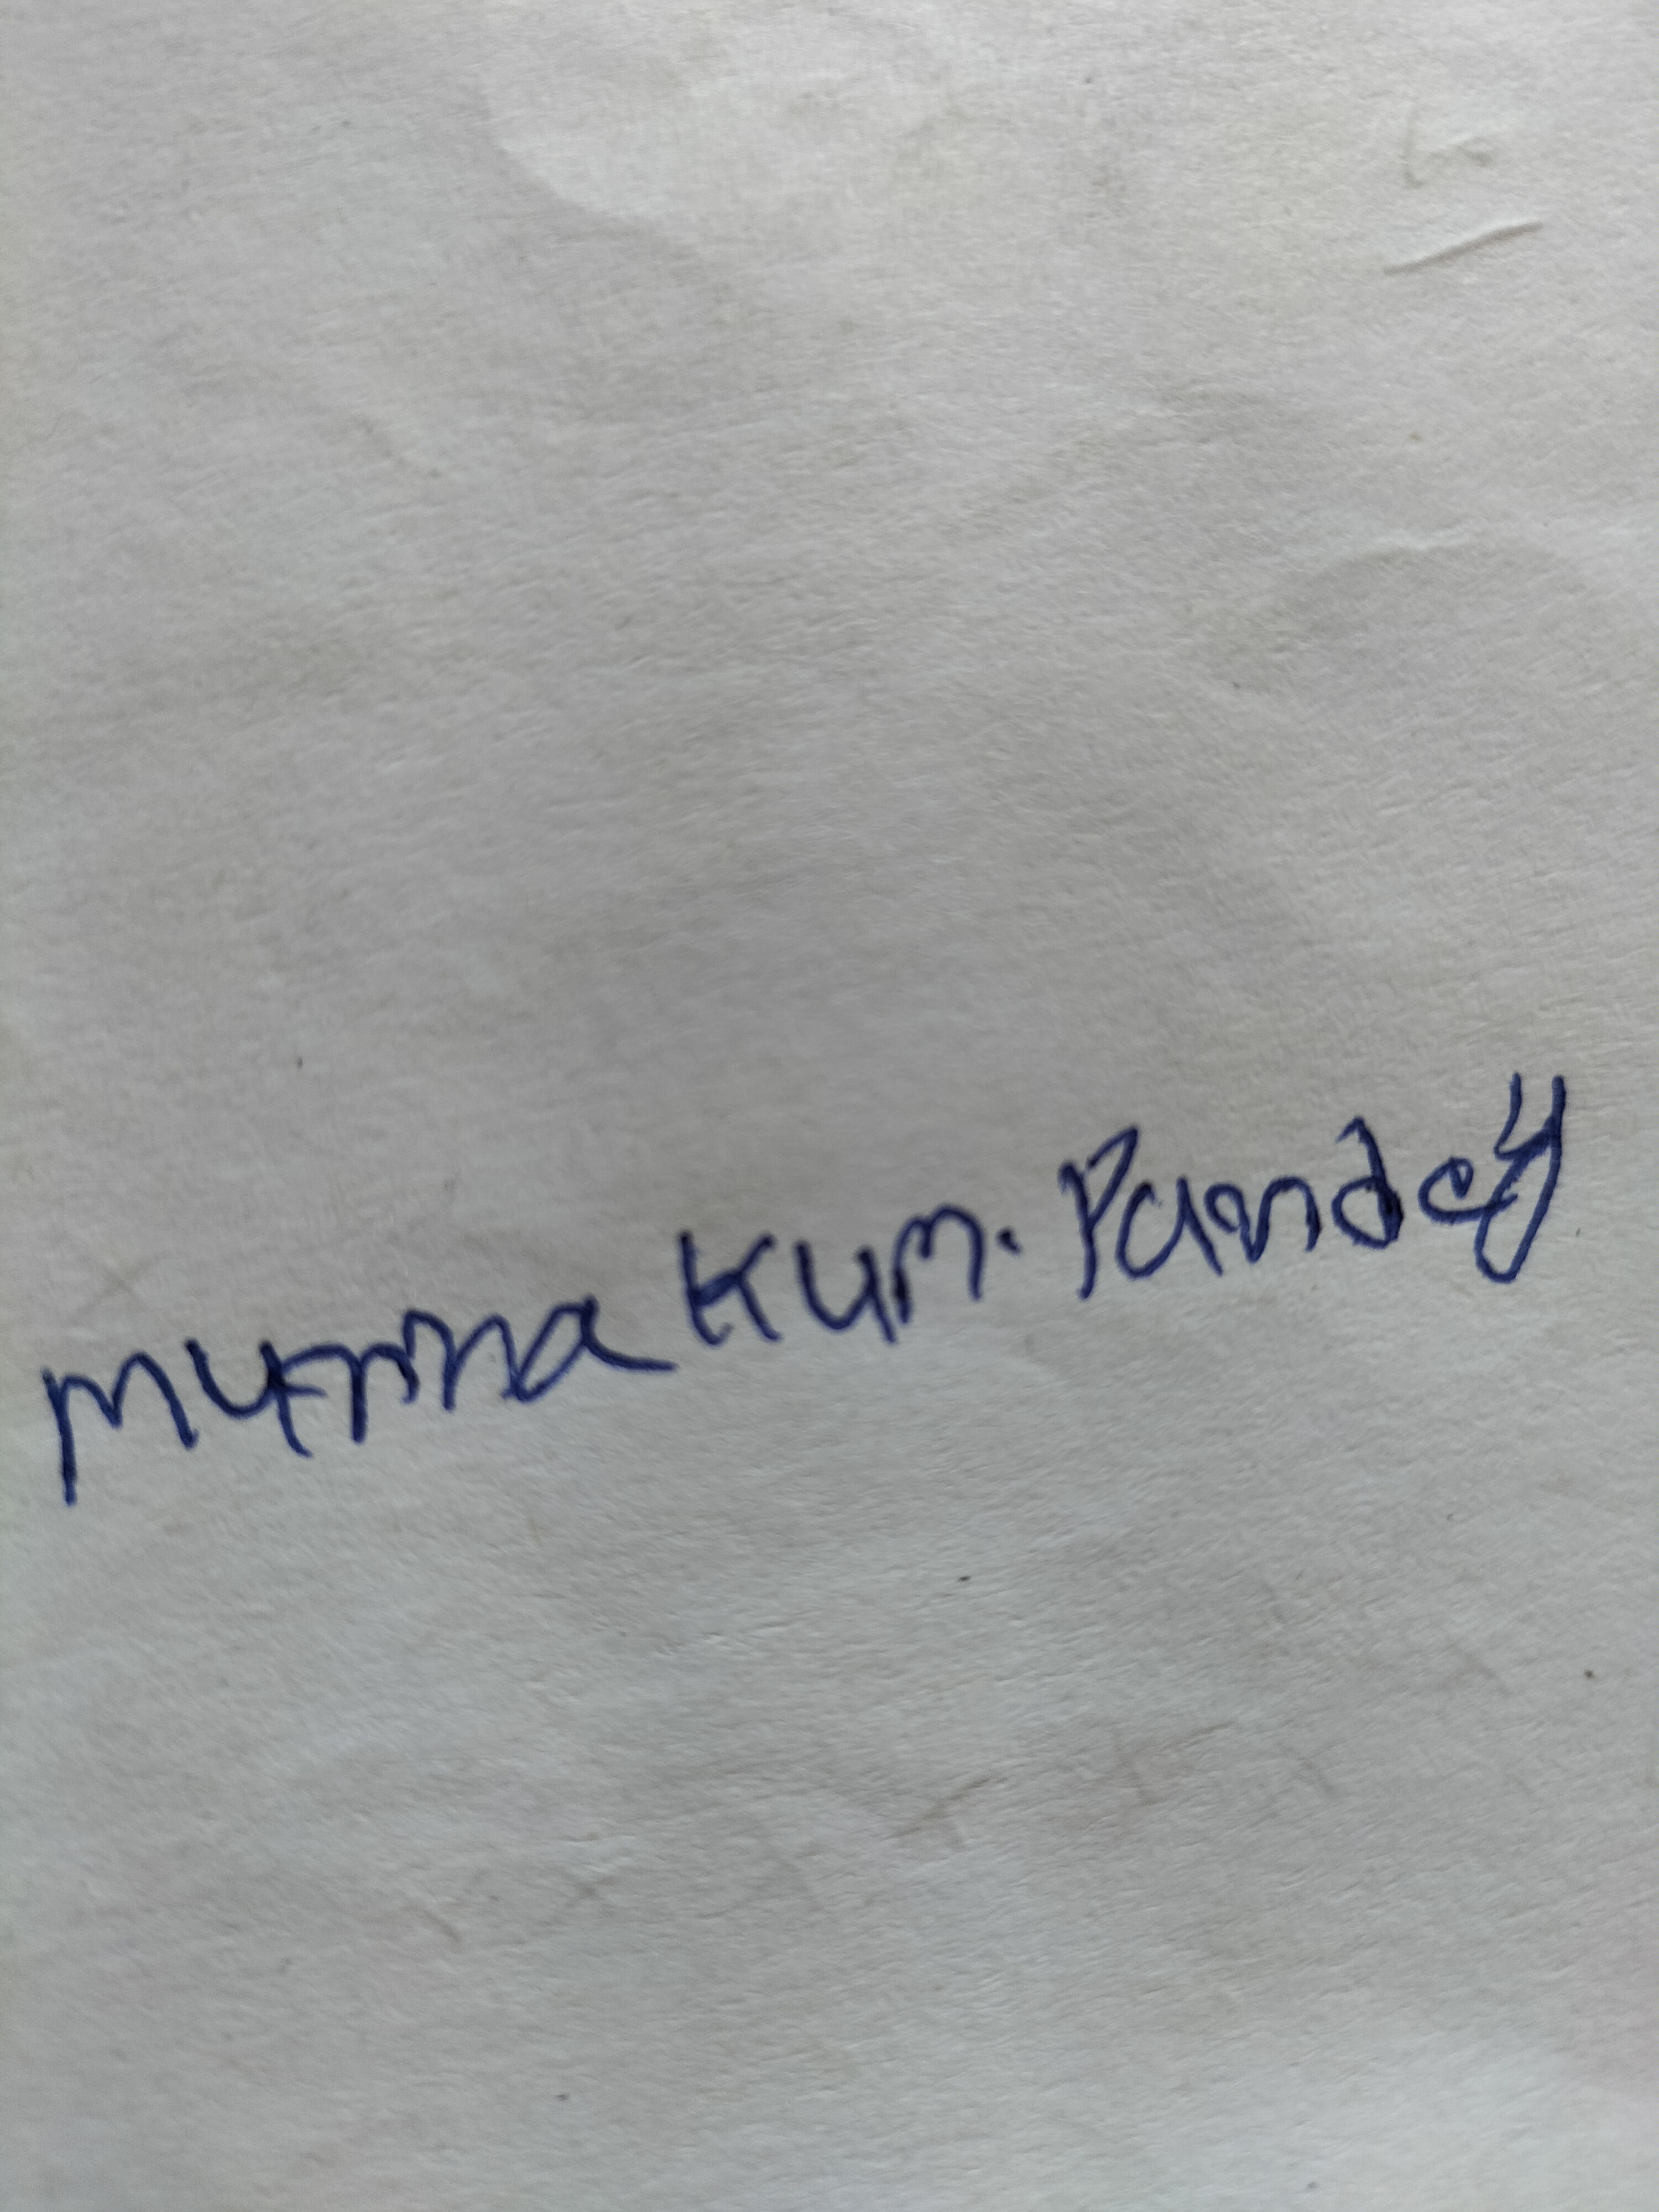 Munna Kum. Pandey